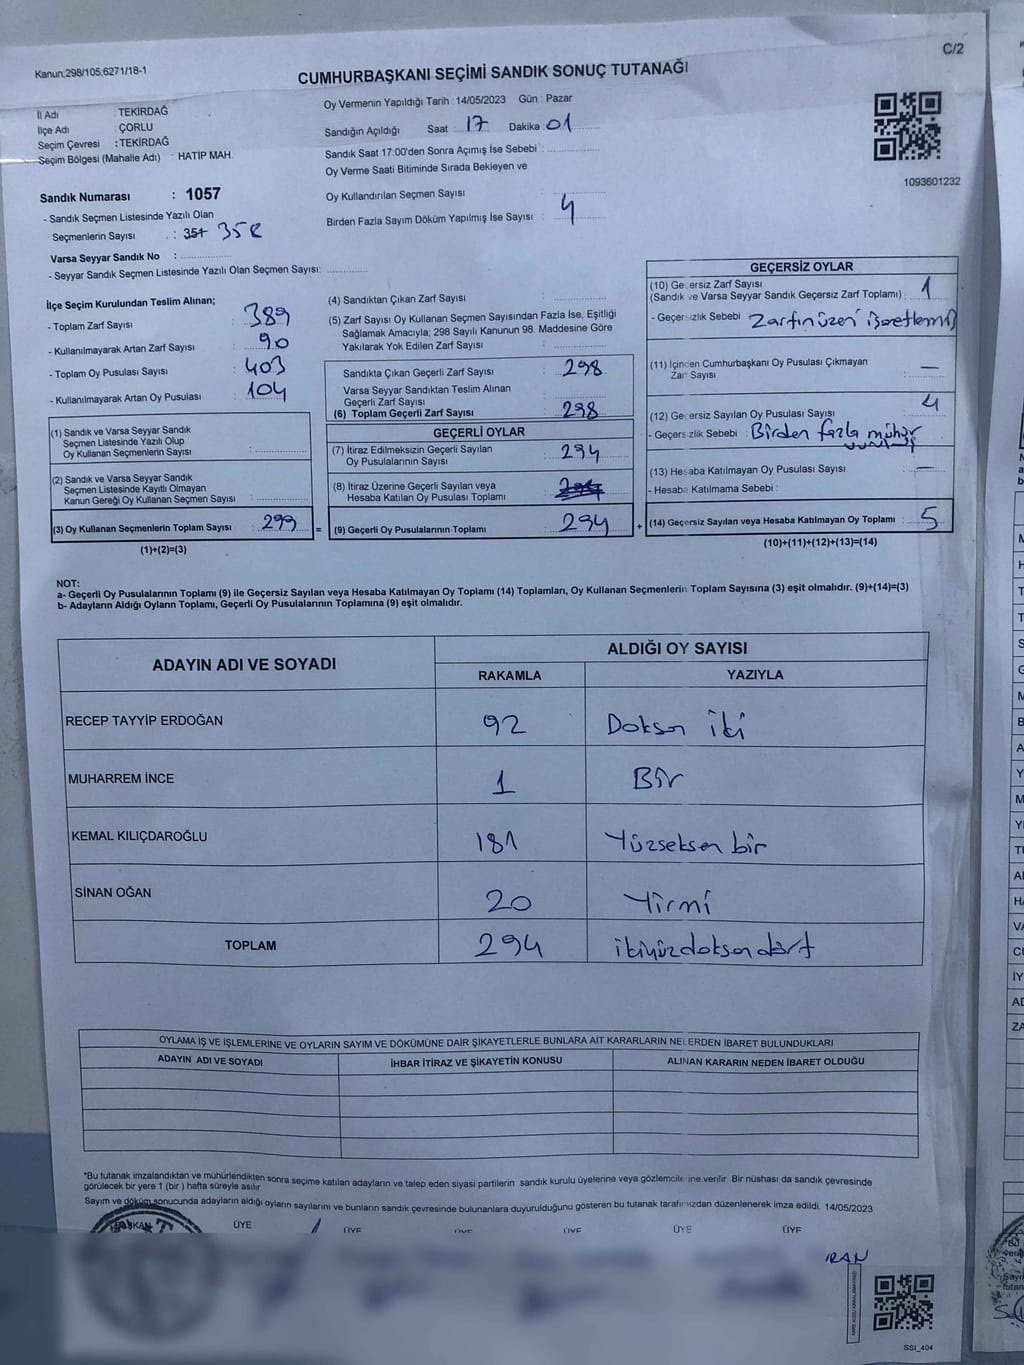 Kanun;298/105;6271/18-1
C/2
CUMHURBAŞKANI SEÇİMİ SANDIK SONUÇ TUTANAĞI
İl Adı : TEKİRDAĞ
İlçe Adı : ÇORLU
Seçim Çevresi : TEKİRDAĞ
Seçim Bölgesi (Mahalle Adı) : HATİP MAH.
Sandık Numarası : 1057
- Sandık Seçmen Listesinde Yazılı Olan
Seçmenlerin Sayısı : 357 358
Varsa Seyyar Sandık No :
- Seyyar Sandık Seçmen Listesinde Yazılı Olan Seçmen Sayısı:
Oy Vermenin Yapıldığı Tarih : 14/05/2023 Gün : Pazar
Sandığın Açıldığı Saat : 17 Dakika : 01
Sandık Saat 17:00'den Sonra Açımış İse Sebebi :
Oy Verme Saati Bitiminde Sırada Bekleyen ve
Oy Kullandırılan Seçmen Sayısı
Birden Fazla Sayım Döküm Yapılmış İse Sayısı : 4
1093601232
İlçe Seçim Kurulundan Teslim Alınan;
- Toplam Zarf Sayısı : 389
- Kullanılmayarak Artan Zarf Sayısı : 90
- Toplam Oy Pusulası Sayısı : 403
- Kullanılmayarak Artan Oy Pusulası : 104
(1) Sandık ve Varsa Seyyar Sandık
Seçmen Listesinde Yazılı Olup
Oy Kullanan Seçmenlerin Sayısı :
(2) Sandık ve Varsa Seyyar Sandık
Seçmen Listesinde Kayıtlı Olmayan
Kanun Gereği Oy Kullanan Seçmen Sayısı :
(3) Oy Kullanan Seçmenlerin Toplam Sayısı : 299 =
(1)+(2)=(3)
(4) Sandıktan Çıkan Zarf Sayısı :
(5) Zarf Sayısı Oy Kullanan Seçmen Sayısından Fazla İse, Eşitliği
Sağlamak Amacıyla; 298 Sayılı Kanunun 98. Maddesine Göre
Yakılarak Yok Edilen Zarf Sayısı :
Sandıkta Çıkan Geçerli Zarf Sayısı : 298
Varsa Seyyar Sandıktan Teslim Alınan
Geçerli Zarf Sayısı :
(6) Toplam Geçerli Zarf Sayısı : 298
GEÇERLİ OYLAR
(7) İtiraz Edilmeksizin Geçerli Sayılan
Oy Pusulalarının Sayısı : 294
(8) İtiraz Üzerine Geçerli Sayılan veya
Hesaba Katılan Oy Pusulası Toplamı :
(9) Geçerli Oy Pusulalarının Toplamı : 294 +
GEÇERSİZ OYLAR
(10) Geçersiz Zarf Sayısı
(Sandık ve Varsa Seyyar Sandık Geçersiz Zarf Toplamı) : 1
- Geçersizlik Sebebi : Zarfın üzeri işaretlemiş
(11) İçinden Cumhurbaşkanı Oy Pusulası Çıkmayan
Zarf Sayısı : —
(12) Geçersiz Sayılan Oy Pusulası Sayısı : 4
- Geçersizlik Sebebi : Birden fazla mühür
(13) Hesaba Katılmayan Oy Pusulası Sayısı : —
- Hesaba Katılmama Sebebi :
(14) Geçersiz Sayılan veya Hesaba Katılmayan Oy Toplamı : 5
(10)+(11)+(12)+(13)=(14)
NOT:
a- Geçerli Oy Pusulalarının Toplamı (9) ile Geçersiz Sayılan veya Hesaba Katılmayan Oy Toplamı (14) Toplamları, Oy Kullanan Seçmenlerin Toplam Sayısına (3) eşit olmalıdır. (9)+(14)=(3)
b- Adayların Aldığı Oyların Toplamı, Geçerli Oy Pusulalarının Toplamına (9) eşit olmalıdır.
ADAYIN ADI VE SOYADI ALDIĞI OY SAYISI
RAKAMLA YAZIYLA
RECEP TAYYİP ERDOĞAN 92 Doksan iki
MUHARREM İNCE 1 Bir
KEMAL KILIÇDAROĞLU 181 Yüzseksen bir
SİNAN OĞAN 20 Yirmi
TOPLAM 294 ikiyüzdoksandört
OYLAMA İŞ VE İŞLEMLERİNE VE OYLARIN SAYIM VE DÖKÜMÜNE DAİR ŞİKAYETLERLE BUNLARA AİT KARARLARIN NELERDEN İBARET BULUNDUKLARI
ADAYIN ADI VE SOYADI İHBAR İTİRAZ VE ŞİKAYETİN KONUSU ALINAN KARARIN NEDEN İBARET OLDUĞU
*Bu tutanak imzalandıktan ve mühürlendikten sonra seçime katılan adayların ve talep eden siyasi partilerin sandık kurulu üyelerine veya gözlemcilerine verilir. Bir nüshası da sandık çevresinde
görülecek bir yere 1 (bir) hafta süreyle asılır.
Sayım ve döküm sonucunda adayların aldığı oyların sayılarını ve bunların sandık çevresinde bulunanlara duyurulduğunu gösteren bu tutanak tarafımızdan düzenlenerek imza edildi. 14/05/2023
BAŞKAN ÜYE ÜYE ÜYE ÜYE ÜYE ÜYE
SSI_404